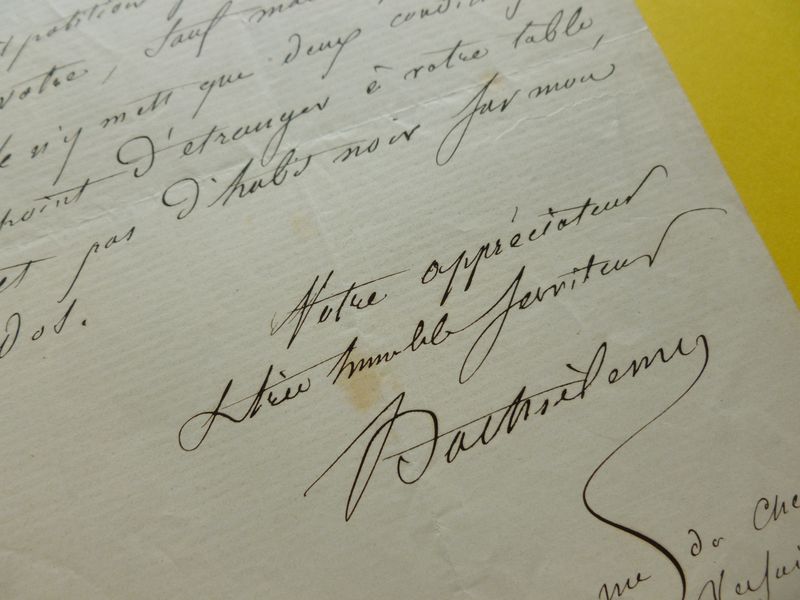 votre, sauf
Je n'y mets que deux condi
point d'étranger à votre table,
et pas d'habit noir sur mon
dos.
Votre appréciateur
& très humble serviteur
Barthélemy
rue du Che
Versai